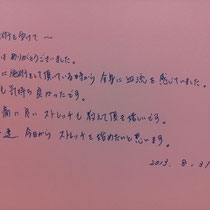 術を受けて 〜
はありがとうございました。
に施術をして頂いている時から 全身に血流を感じていました。
も気持ち良かったです。
痛に良い ストレッチも 教えて頂き嬉しいです。
速 今日から ストレッチを始めたいと思います。
2013. 8. 31